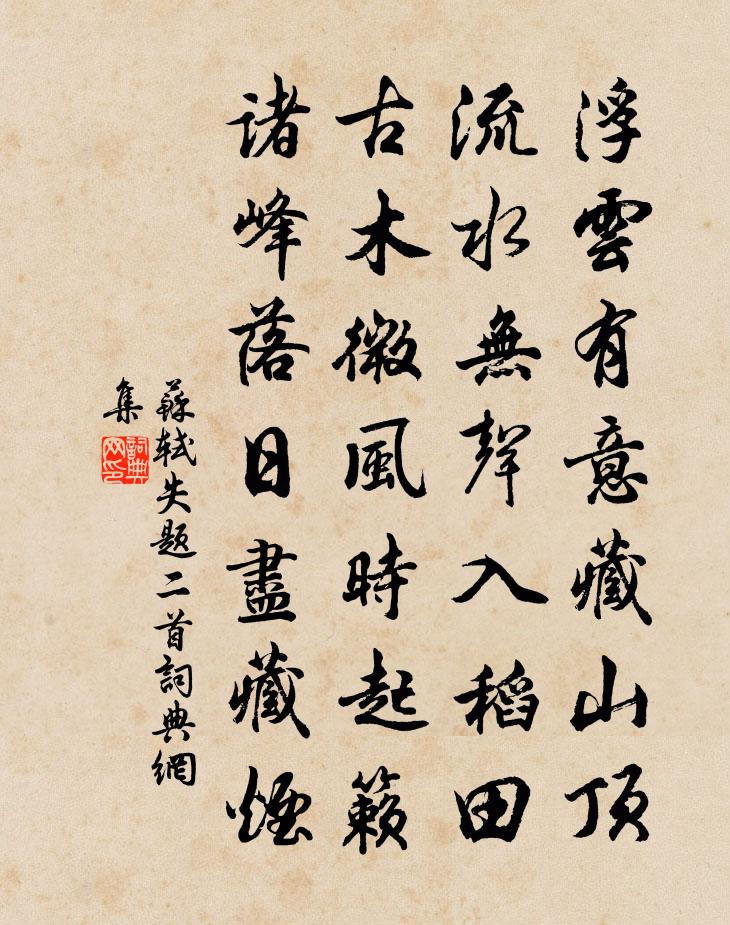 浮雲有意藏山頂
流水無聲入稻田
古木微風時起籟
諸峰落日盡藏煙
蘇軾失题二首詞典網
集
詞典网印